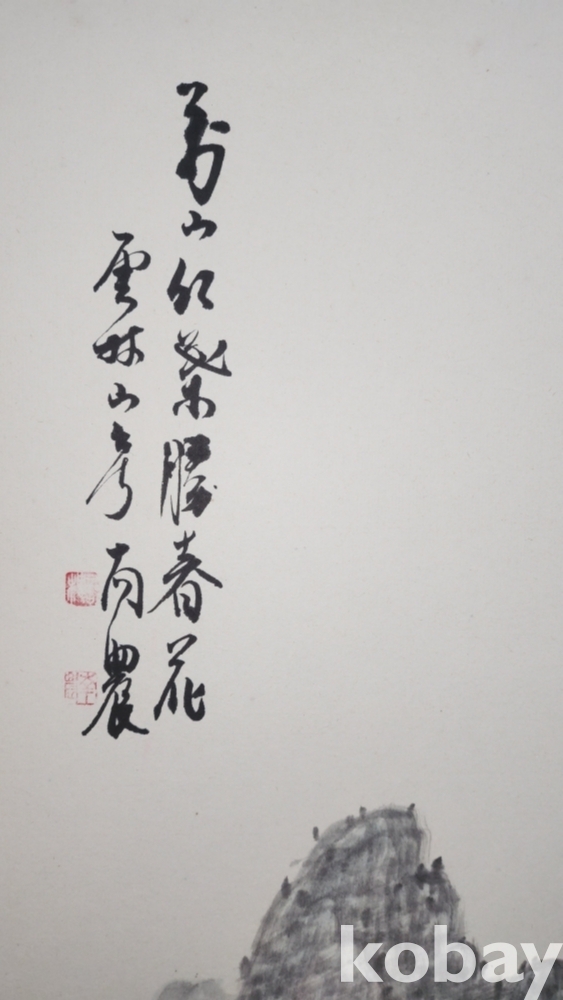 萬山紅紫勝春花
雲林山房 農
kobay